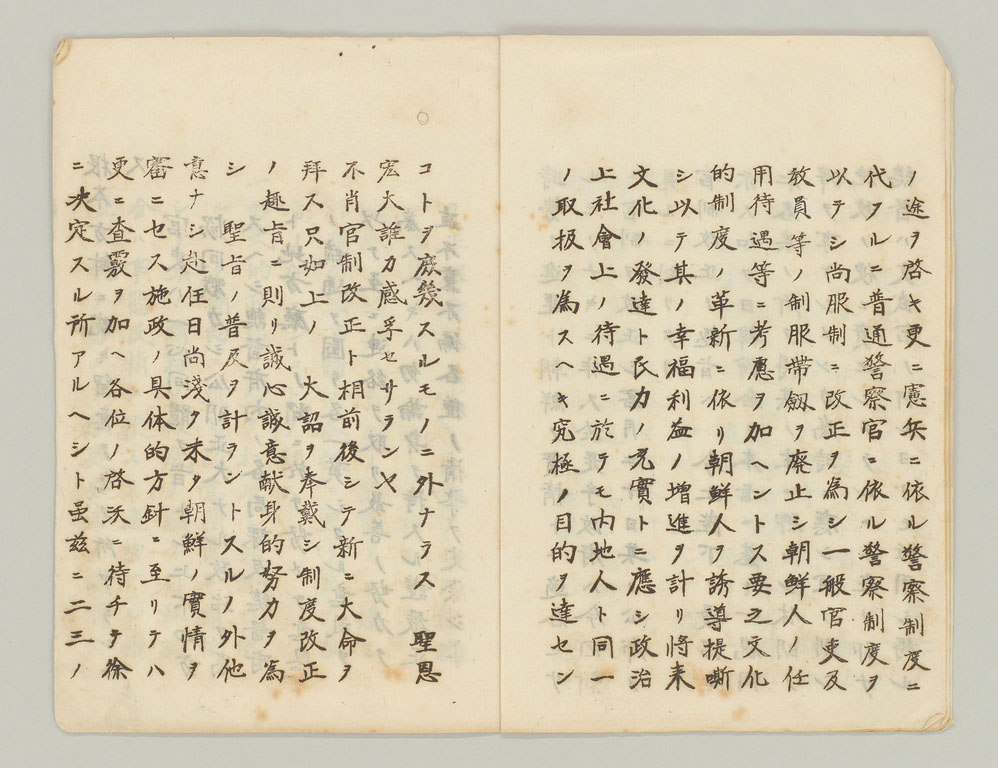 ノ途ヲ啓キ更ニ憲兵ニ依ル警察制度ニ
代フルニ普通警察官ニ依ル警察制度ヲ
以テシ尚服制ニ改正ヲ為シ一般官吏及
教員等ノ制服帶劔ヲ廃止シ朝鮮人ノ任
用待遇等ニ考慮ヲ加ヘントス要之文化
的制度ノ革新ニ依リ朝鮮人ヲ誘導提嘶
シ以テ其ノ幸福利益ノ増進ヲ計リ將来
文化ノ發達ト民力ノ充實トニ應シ政治
上社會上ノ待遇ニ於テモ内地人ト同一
ノ取扱ヲ為スヘキ究極ノ目的ヲ達セン
コトヲ庶幾スルモノニ外ナラス 聖恩
宏大誰カ感孚セサランヤ
不肖官制改正ト相前後シテ新ニ大命ヲ
拜ス只如上ノ 大詔ヲ奉戴シ制度改正
ノ趣旨ニ則リ誠心誠意献身的努力ヲ為
シ 聖旨ノ普及ヲ計ラントスルノ外他
意ナシ赴任日尚淺ク未タ朝鮮ノ實情ヲ
審ニセス施政ノ具体的方針ニ至リテハ
更ニ査覈ヲ加ヘ各位ノ啓沃ニ待チテ徐
ニ决定スル所アルヘシト虽茲ニ二三ノ